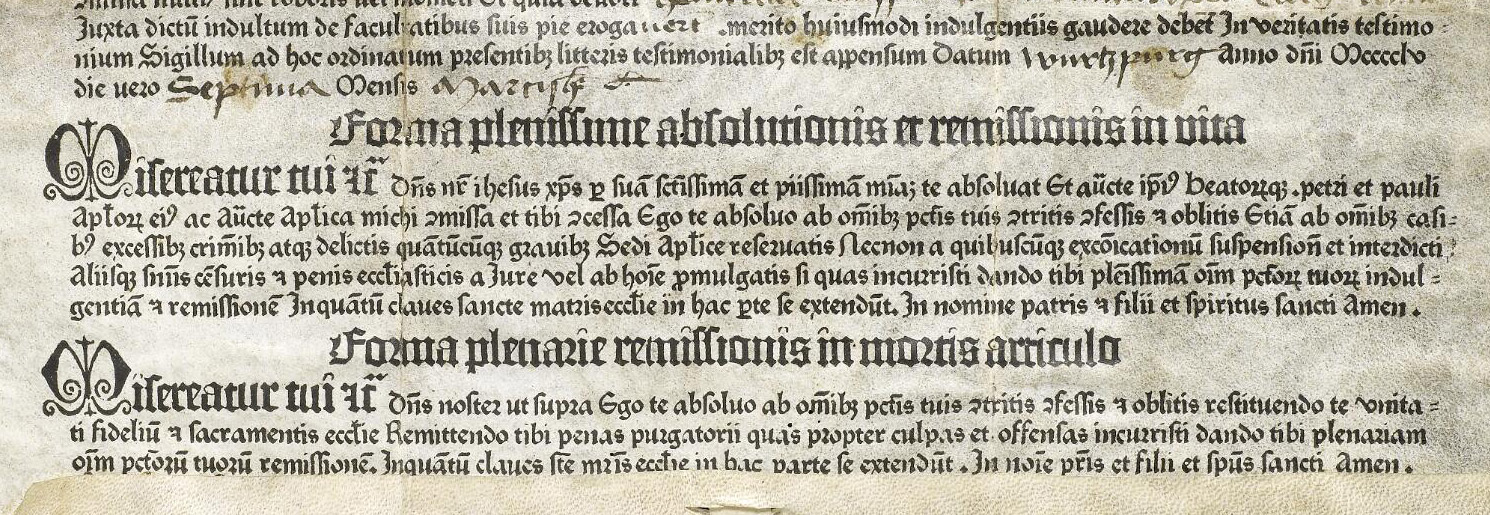 Juxta dictū indultum de facultatibus suis pie erogauert merito huiusmodi indulgentiis gaudere debet̄ In veritatis testimo⸗
nium Sigillum ad hoc ordinatum presentibꝫ litteris testimonialibꝫ est appensum Datum wurtzpurg Anno dn̄i Mccccclv
die uero Septima Mensis Marcij
Forma plenissime absolutionis et remissionis in vita
Misereatur tui ⁊c̄ Dn̄s nr̄ ihesus xp̄s ꝑ suā sctīssimā et piissimā mīaꝫ te absoluat Et aūcte ip̄iꝰ beatorꝝqꝫ .petri et pauli
Apl̄orꝝ eiꝰ ac aūcte apl̄ica michi ꝯmissa et tibi ꝯcessa Ego te absoluo ab om̄ibꝫ pctīs tuis ꝯtritis ꝯfessis ⁊ oblitis Etiā ab om̄ibꝫ casi⸗
bꝰ excessibꝫ crim̄ibꝫ atqꝫ delictis quātūcūqꝫ grauibꝫ Sedi Apl̄ice reseruatis Necnon a quibuscūqꝫ excōicationū suspension̄ et interdicti
Aliisqꝫ sn̄iis cēsuris ⁊ penis eccl̄iasticis a Jure vel ab hoīe ꝓmulgatis si quas incurristi dando tibi plēissimā oīm pctōrꝝ tuorꝝ indul⸗
gentiā ⁊ remissionē Inquātū claues sancte matris eccl̄ie in hac ꝑte se extendūt. In nomine patris ⁊ filii et spiritus sancti Amen.
Forma plenarie remissionis in mortis articulo
Misereatur tui ⁊c̄ Dn̄s noster ut supra Ego te absoluo ab om̄ibꝫ pctīs tuis ꝯtritis ꝯfessis ⁊ oblitis restituendo te vnita⸗
ti fideliū ⁊ sacramentis eccl̄ie Remittendo tibi penas purgatorii quas propter culpas et offensas incurristi dando tibi plenariam
oīm pctōrū tuorū remissionē. Inquātū claues stē mr̄is eccl̄ie in hac parte se extendūt. In noīe pr̄is et filii et sp̄us sancti Amen.